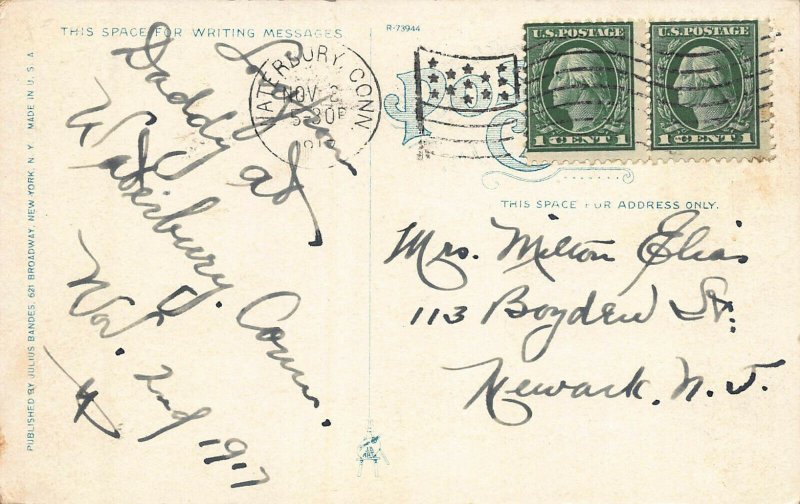 THIS SPACE FOR WRITING MESSAGES
R-73944
So from
Daddy at
Waterbury, Conn.
Nov. 2nd 1917
WATERBURY, CONN.
NOV 2
5-30P
U.S. POSTAGE
1 CENT 1
U.S. POSTAGE
1 CENT 1
THIS SPACE FOR ADDRESS ONLY.
Mrs. Milton Elias
113 Boyden St.
Newark. N. J.
PUBLISHED BY JULIUS BANDES, 621 BROADWAY, NEW YORK, N. Y. MADE IN U. S. A